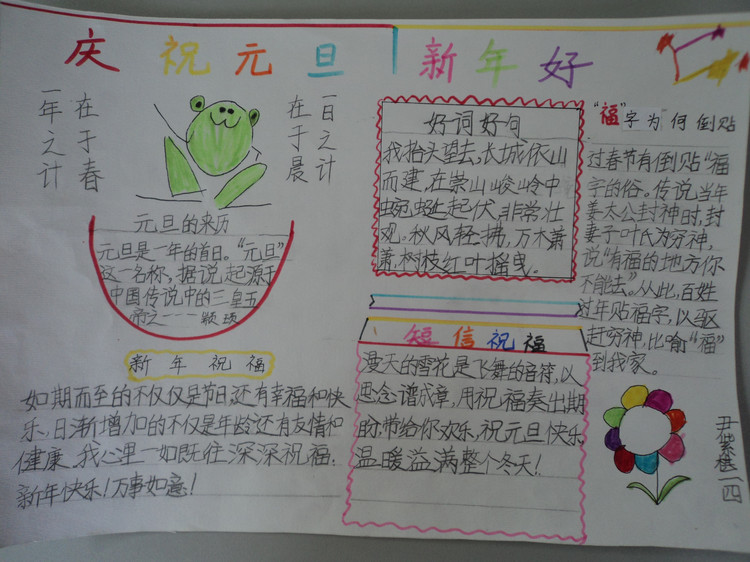 庆祝元旦 新年好
一年之计
在于春
在于晨
一日之计
元旦的来历
元旦是一年的首日。“元旦”
这一名称，据说起源于
中国传说中的三皇五
帝之一——颛顼
新年祝福
如期而至的不仅仅是节日，还有幸福和快
乐，日渐增加的不仅是年龄还有友情和
健康，我心里一如既往深深祝福：
新年快乐！万事如意！
好词好句
我抬头望去，长城依山
而建，在崇山峻岭中
蜿蜒起伏，非常壮
观。秋风轻拂，万木萧
萧，树枝红叶摇曳。
短信祝福
漫天的雪花是飞舞的音符，以
思念谱成章，用祝福奏出期
盼，带给你欢乐，祝元旦快乐
温暖益满整个冬天！
“福”字为何倒贴
过春节有倒贴“福”
字的俗。传说当年
姜太公封神时，封
妻子叶氏为穷神，
说“有福的地方你
不能去”。从此，百姓
过年贴福字，以驱
赶穷神，比喻“福”
到我家。
四